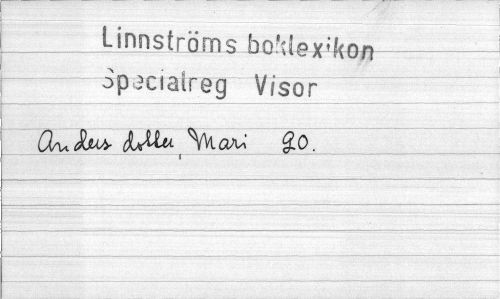 Linnströms boklexikon
Specialreg Visor
Anders dotter, Mari 90.